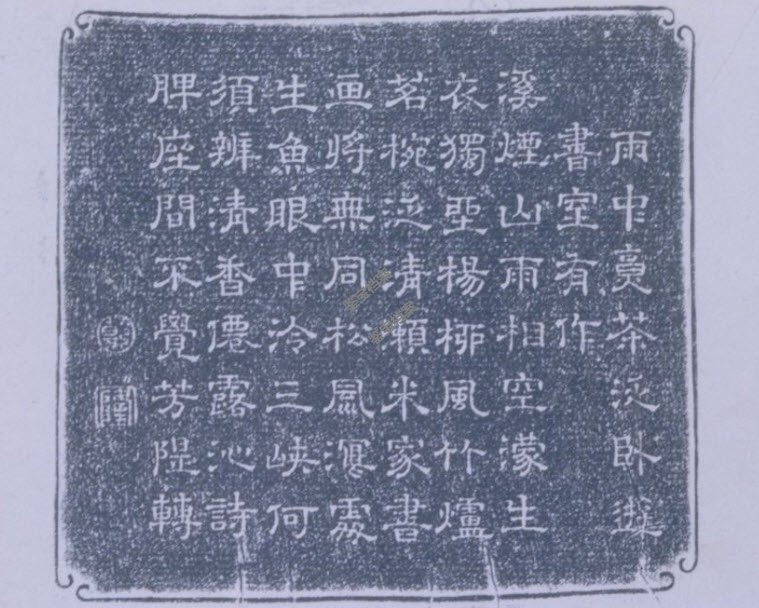 雨中烹茶泛卧遊
書室有作
溪煙山雨相空濛生
衣獨坐楊柳風竹爐
茗椀泛清瀨米家書
画將無同松風瀉處
生魚眼中泠三峽何
須辨清香僊露沁詩
脾座間不覺芳隄轉
乾
隆